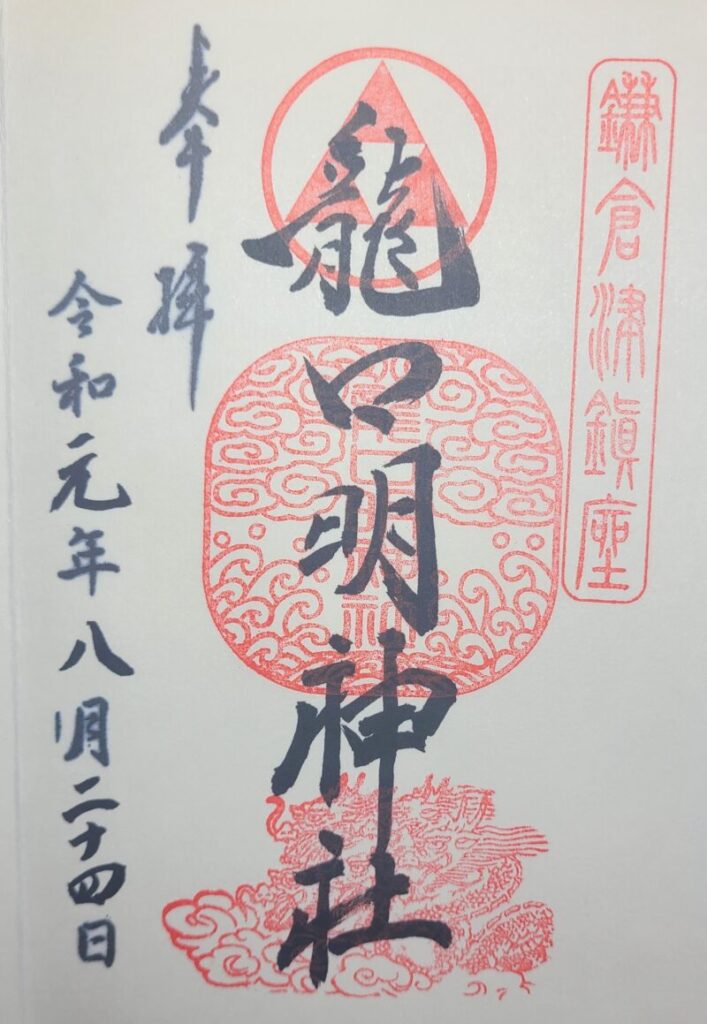 鎌倉津鎮座
龍口明神社
奉拝
令和元年八月二十四日